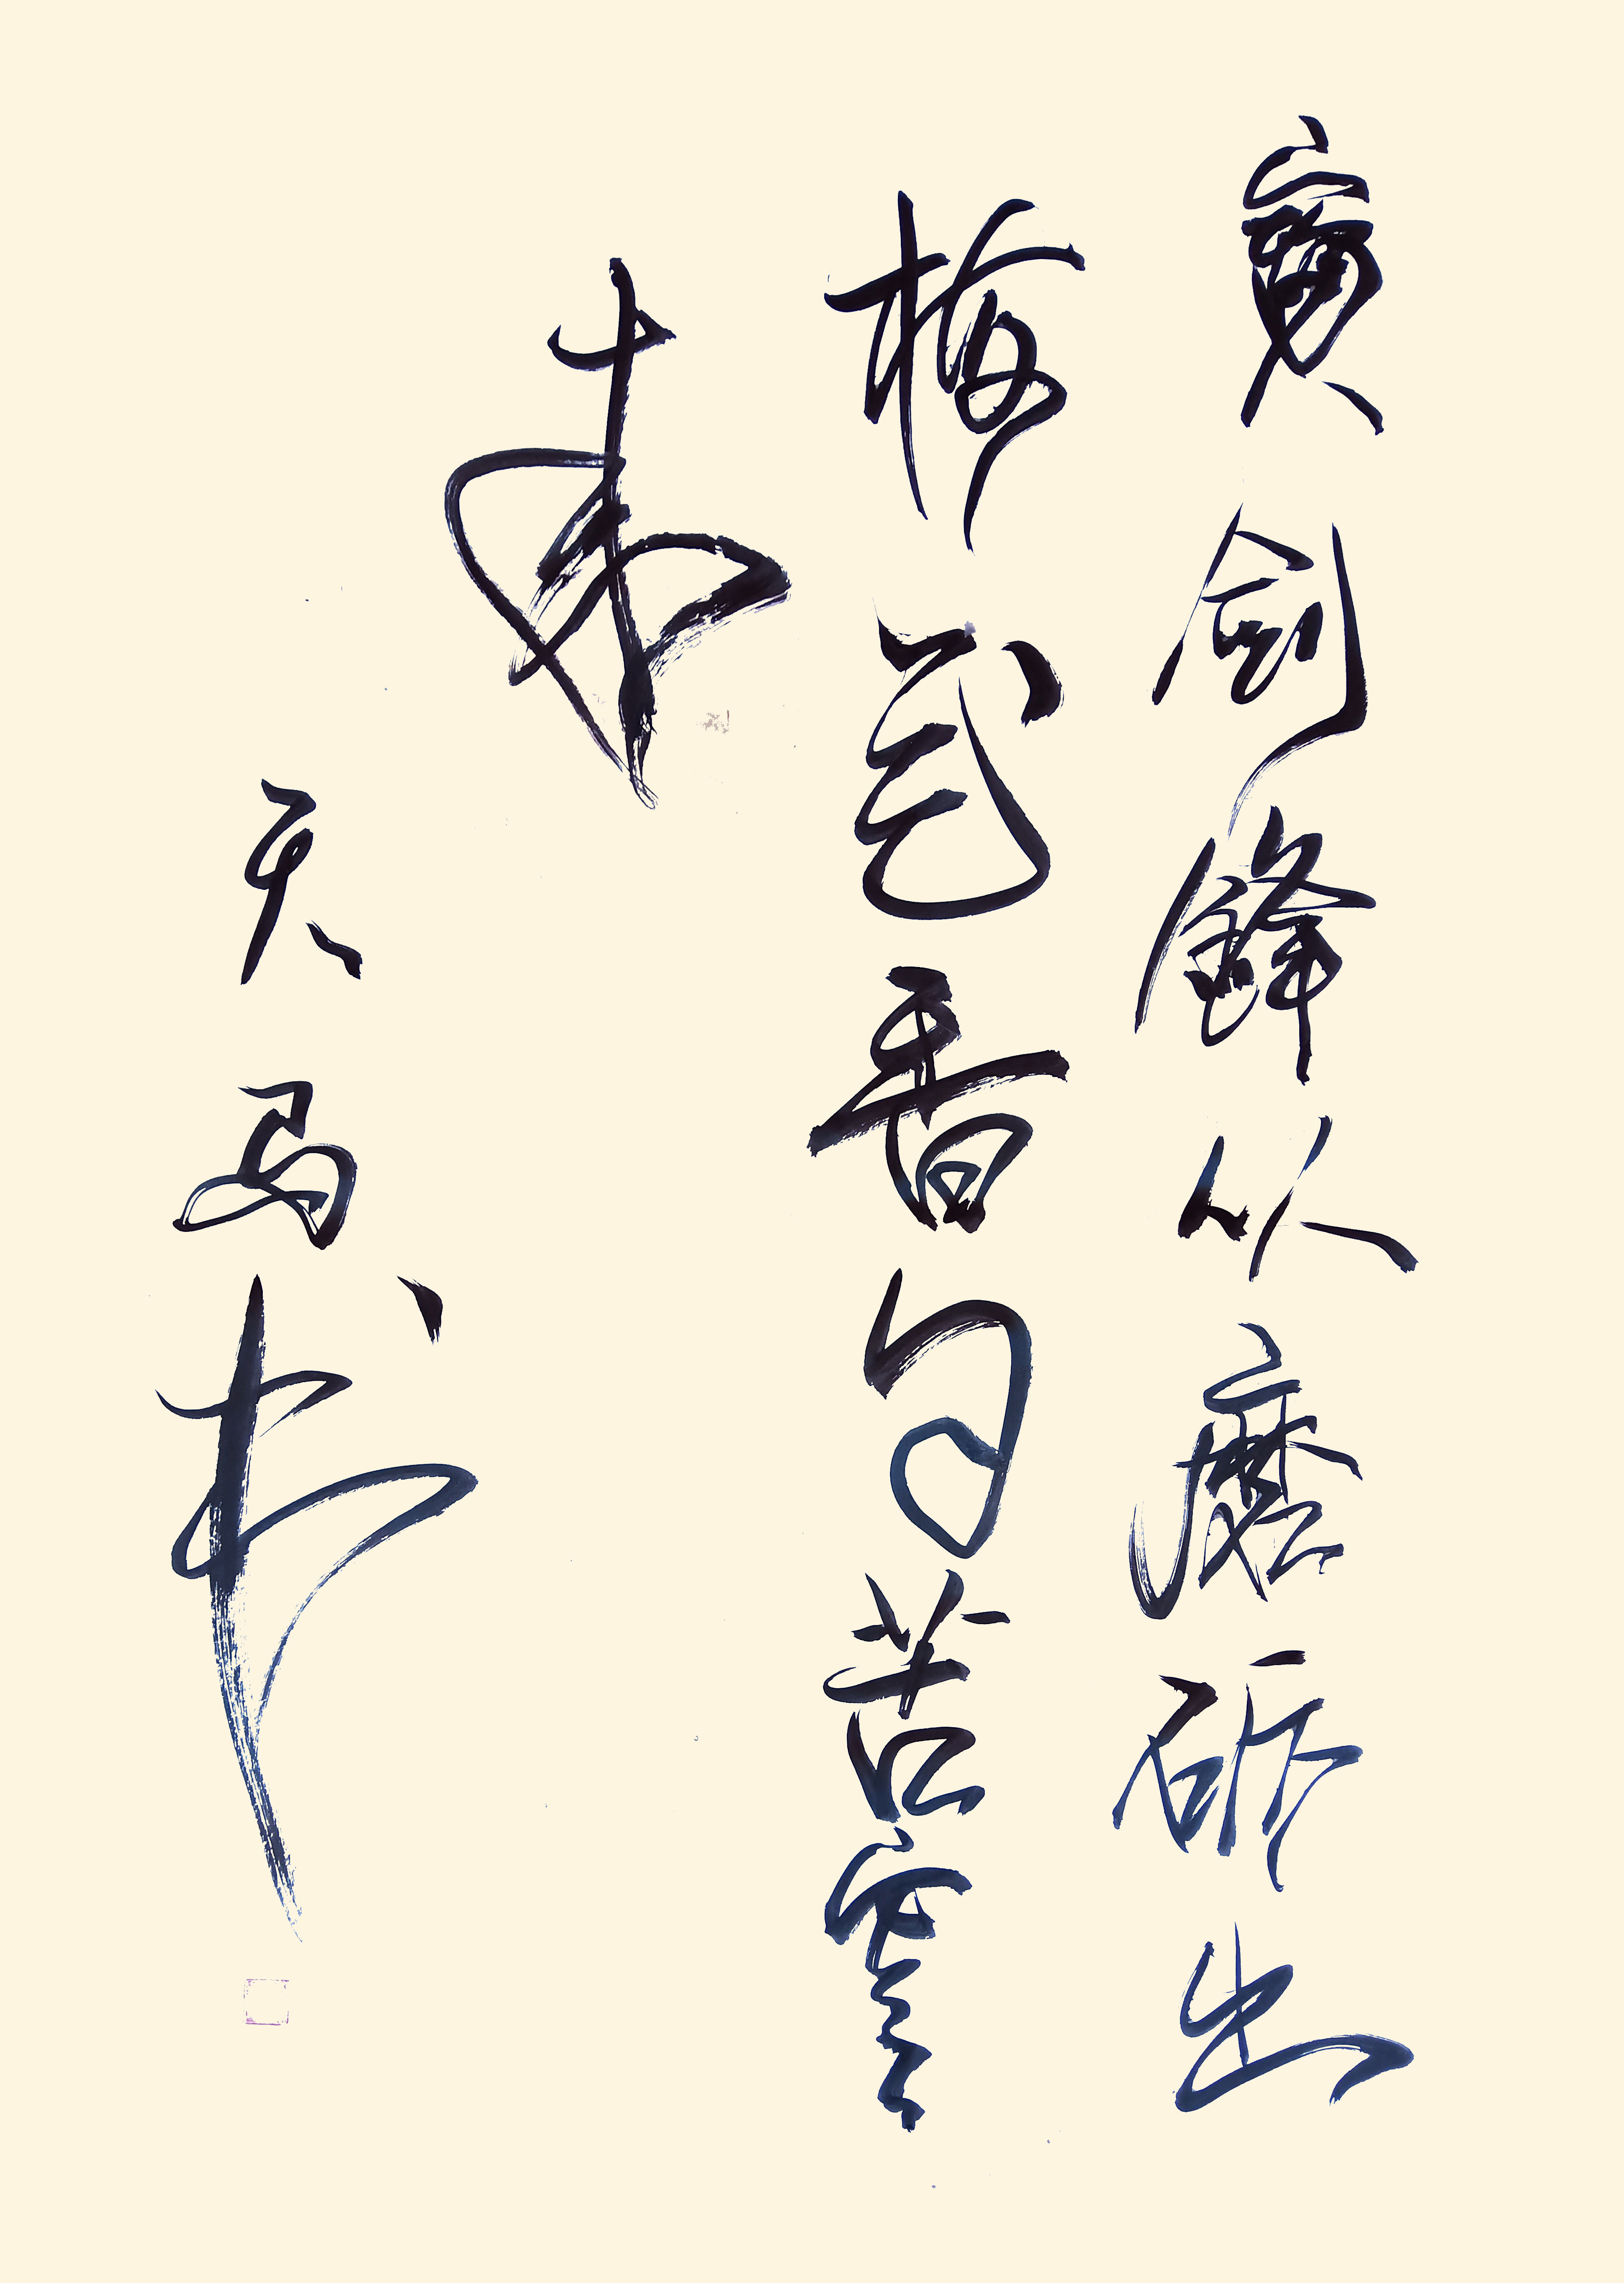 寶劍鋒从磨砺出
梅花香自苦寒
来
天马书